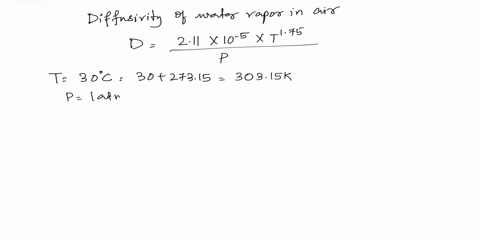 Diffusivity of water vapor in air
D = 2.11 × 10⁻⁵ × T¹·⁷⁵ / P
T= 30°C = 30+273.15 = 303.15K
P= 1atm